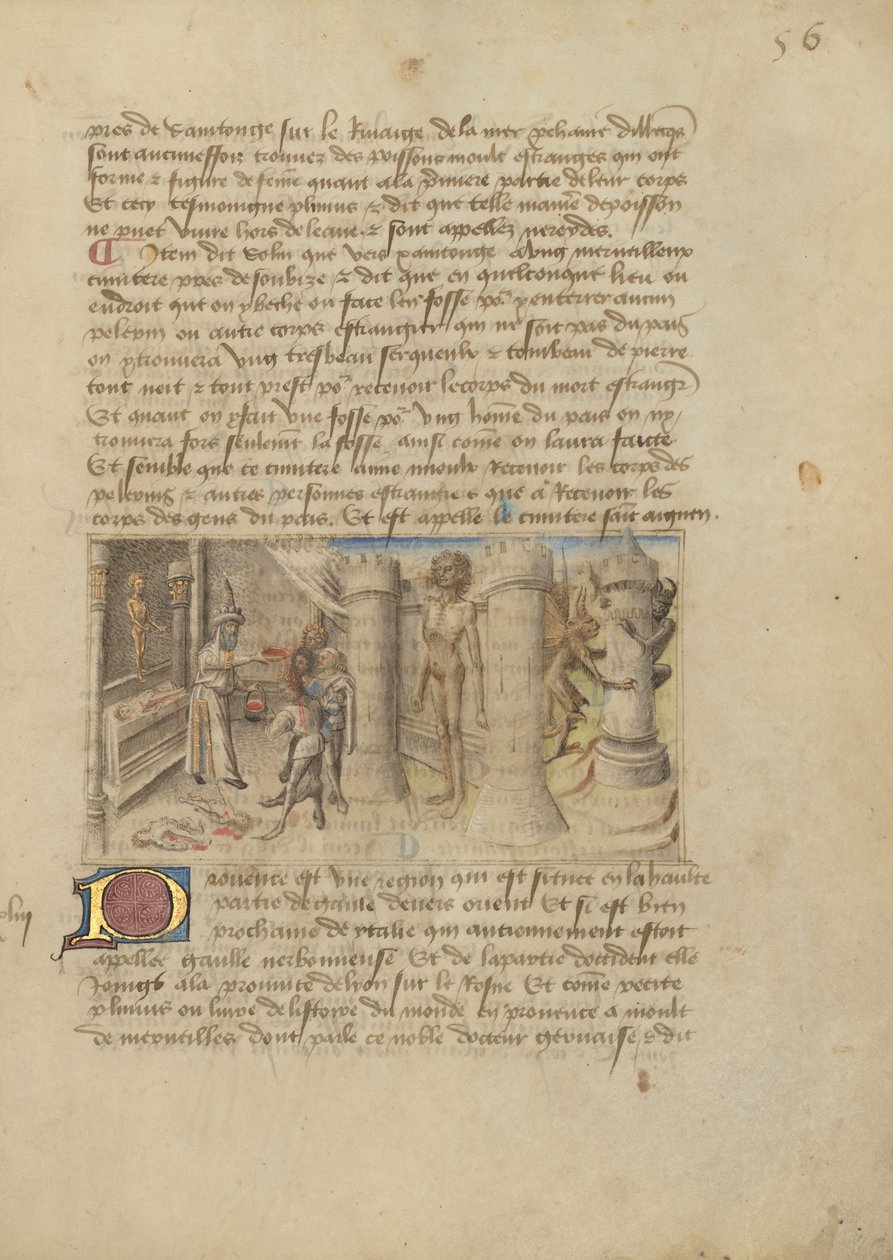 56
pres de Xaintonge sur le Rivaige de la mer prochaine dillecqs
sont aucuneffoiz trouvez des poissons moult estranges qui ont
forme & figure de feme quant a la pmiere partie de leur corps
Et cecy tesmoingne plinius & dit que telle maniere de poisson
ne puet vivre hors de leaue & sont appellez nereydes.
Item dit Solin que vers xaintonge a ung merveilleux
cimitere pres de soubize & dit que en quelconque lieu ou
endroit que on y beche ou face len fosse po y enterrer aucun
pelerin ou autre corps estrangier qui ne soit pas du pais
on y trouvera ung tresbeau serqueulx & tombeau de pierre
tout neit & tout prest po recevoir le corps du mort estrangr
Et quant on y fait une fosse po ung home du pais on ny
trouvera fors seulemt la fosse ainsi come on laura faicte
Et semble que ce cimitere aime mieulx Recevoir les corps des
pelerins & autres personnes estrangiers que a Recevoir les
corps des gens du pais. Et est appelle le cimitere saint aignen.
Provence est une region qui est situee en la haulte
partie de gaule devers orient Et si est bien
prochaine de ytalie qui anciennement estoit
appellee gaulle nerbonneuse Et de la partie doccident elle
Joingt a la province de lyon sur le Rosne Et come recite
plinius ou livre de listoire du monde en provence a moult
de merveilles dont parle ce noble docteur gervaise & dit